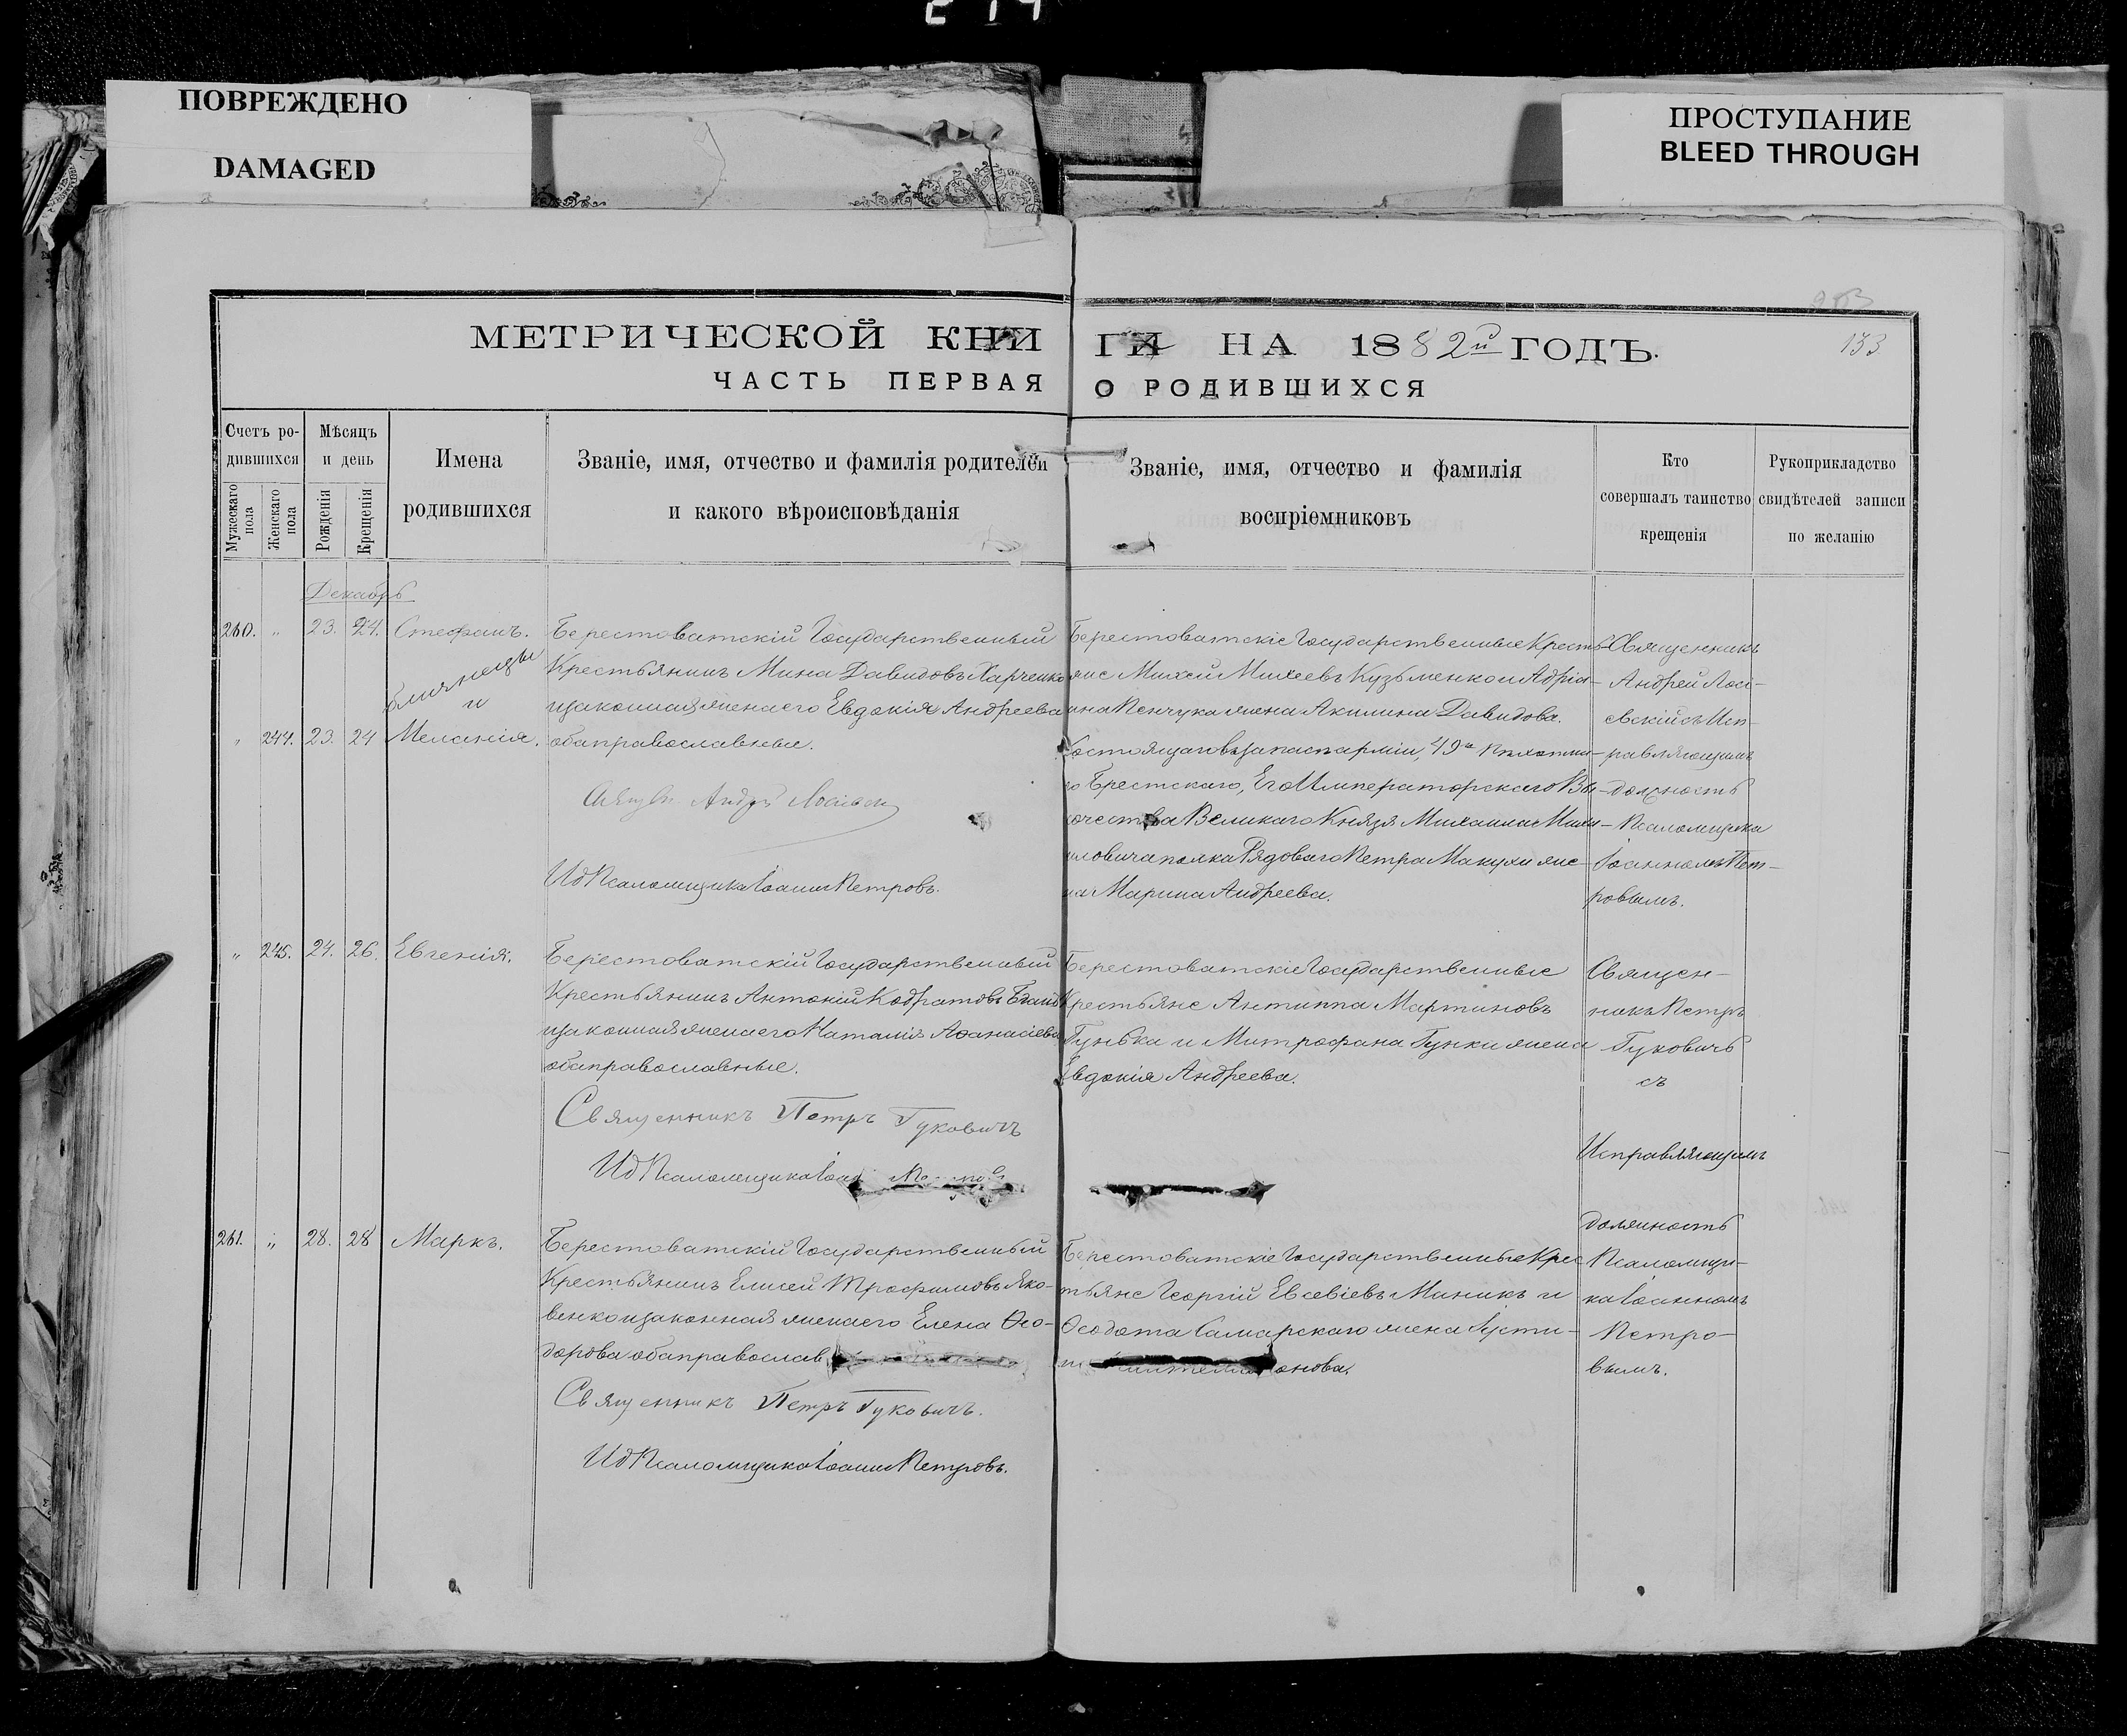 ПОВРЕЖДЕНО
DAMAGED
ПРОСТУПАНИЕ
BLEED THROUGH
МЕТРИЧЕСКОЙ КНИ
ГИ НА 1882й ГОДЪ.
133
ЧАСТЬ ПЕРВАЯ
О РОДИВШИХСЯ
Счетъ ро-
дившихся
Мужескаго
пола
Женскаго
пола
Мѣсяцъ
и день
Рожденія
Крещенія
Имена
родившихся
Званіе, имя, отчество и фамилія родителей
и какого вѣроисповѣданія
Званіе, имя, отчество и фамилія
воспріемниковъ
Кто
совершалъ таинство
крещенія
Рукоприкладство
свидѣтелей записи
по желанію
Декабрь
260. „ 23. 24. Стефанъ.
близнецы
и
„ 244. 23. 24 Меланія.
Берестоватскій Государственный
Крестьянинъ Мина Давидовъ Харченко
и законная жена его Евдокія Андреева
оба православные.
Андрей
Ид Псаломщика Іоаннъ Петровъ.
Берестоватскіе Государственные Кресть-
яне Михей Михеевъ Кузьменко и Адріа-
на Пенчука жена Акилина Давидова.
Состоящаго въ запасѣ арміи, 49го Пѣхотна-
го Брестскаго, Его Императорскаго Вы-
сочества Великаго Князя Михаила Миха-
иловича полка Рядоваго Петра Макухи же-
на Марина Андреева.
Священникъ
Андрей Лоси-
евскій съ Исп-
равляющимъ
должность
Псаломщика
Іоанномъ Пет-
ровымъ.
„ 245. 24. 26. Евгенія.
Берестоватскій Государственный
Крестьянинъ Антоній Кодратовъ
и законная жена его Наталія Аѳанасіева
оба православные.
Священникъ Петръ Гуковичъ
Ид Псаломщика
Берестоватскіе Государственные
Крестьяне Антиппа Мартиновъ
Гунька и Митрофана Гунки жена
Евдокія Андреева.
Священ-
никъ Петръ
Гуковичъ
съ
Исправляющимъ
должность
Псаломщи-
ка Іоанномъ
Петро-
вымъ.
261. „ 28. 28 Маркъ.
Берестоватскій Государственный
Крестьянинъ Елисей Трофимовъ Яко-
венко и законная жена его Елена Ѳео-
дорова оба православ
Священникъ Петръ Гуковичъ.
Ид Псаломщика Іоаннъ Петровъ.
Берестоватскіе Государственные Крес
тьяне Георгій Евсевіевъ Маникъ и
Ѳеодота Самарскаго жена Іусти-